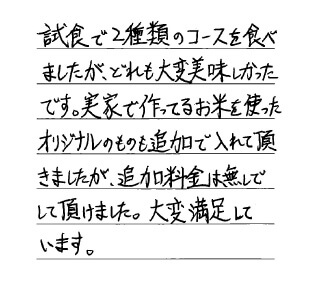 試食で2種類のコースを食べ
ましたが、どれも大変美味しかった
です。実家で作ってるお米を使った
オリジナルのものも追加で入れて頂
きましたが、追加料金は無しで
して頂けました。大変満足して
います。